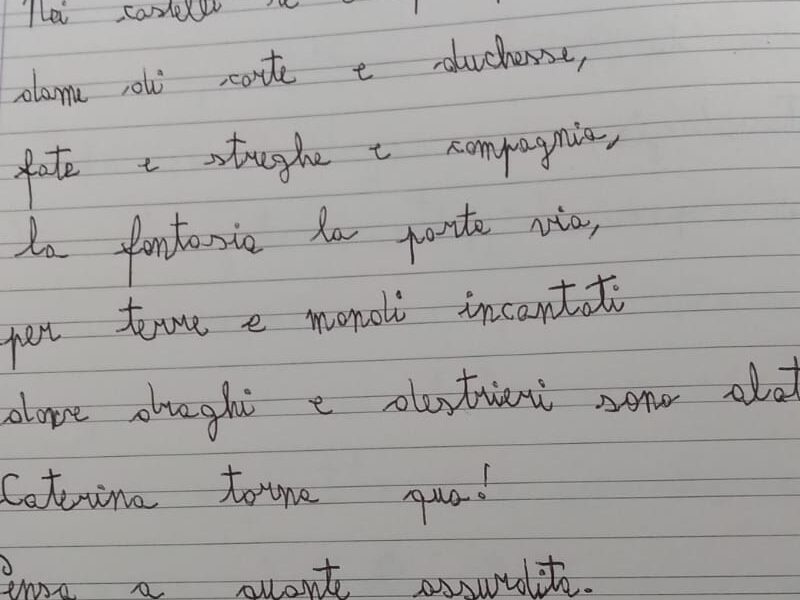 Nei castelli
dame di corte e duchesse,
fate e streghe e compagnia,
la fantasia la porta via,
per terre e mondi incantati
dove draghi e destrieri sono alat
Caterina torna qua!
Pensa a quante assurdità.